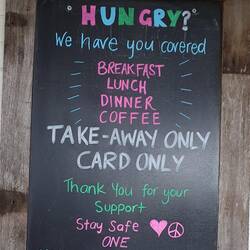 "HUNGRY?"
We have you covered
BREAKFAST
LUNCH
DINNER
COFFEE
TAKE-AWAY ONLY
CARD ONLY
Thank You for your
Support
Stay Safe
ONE